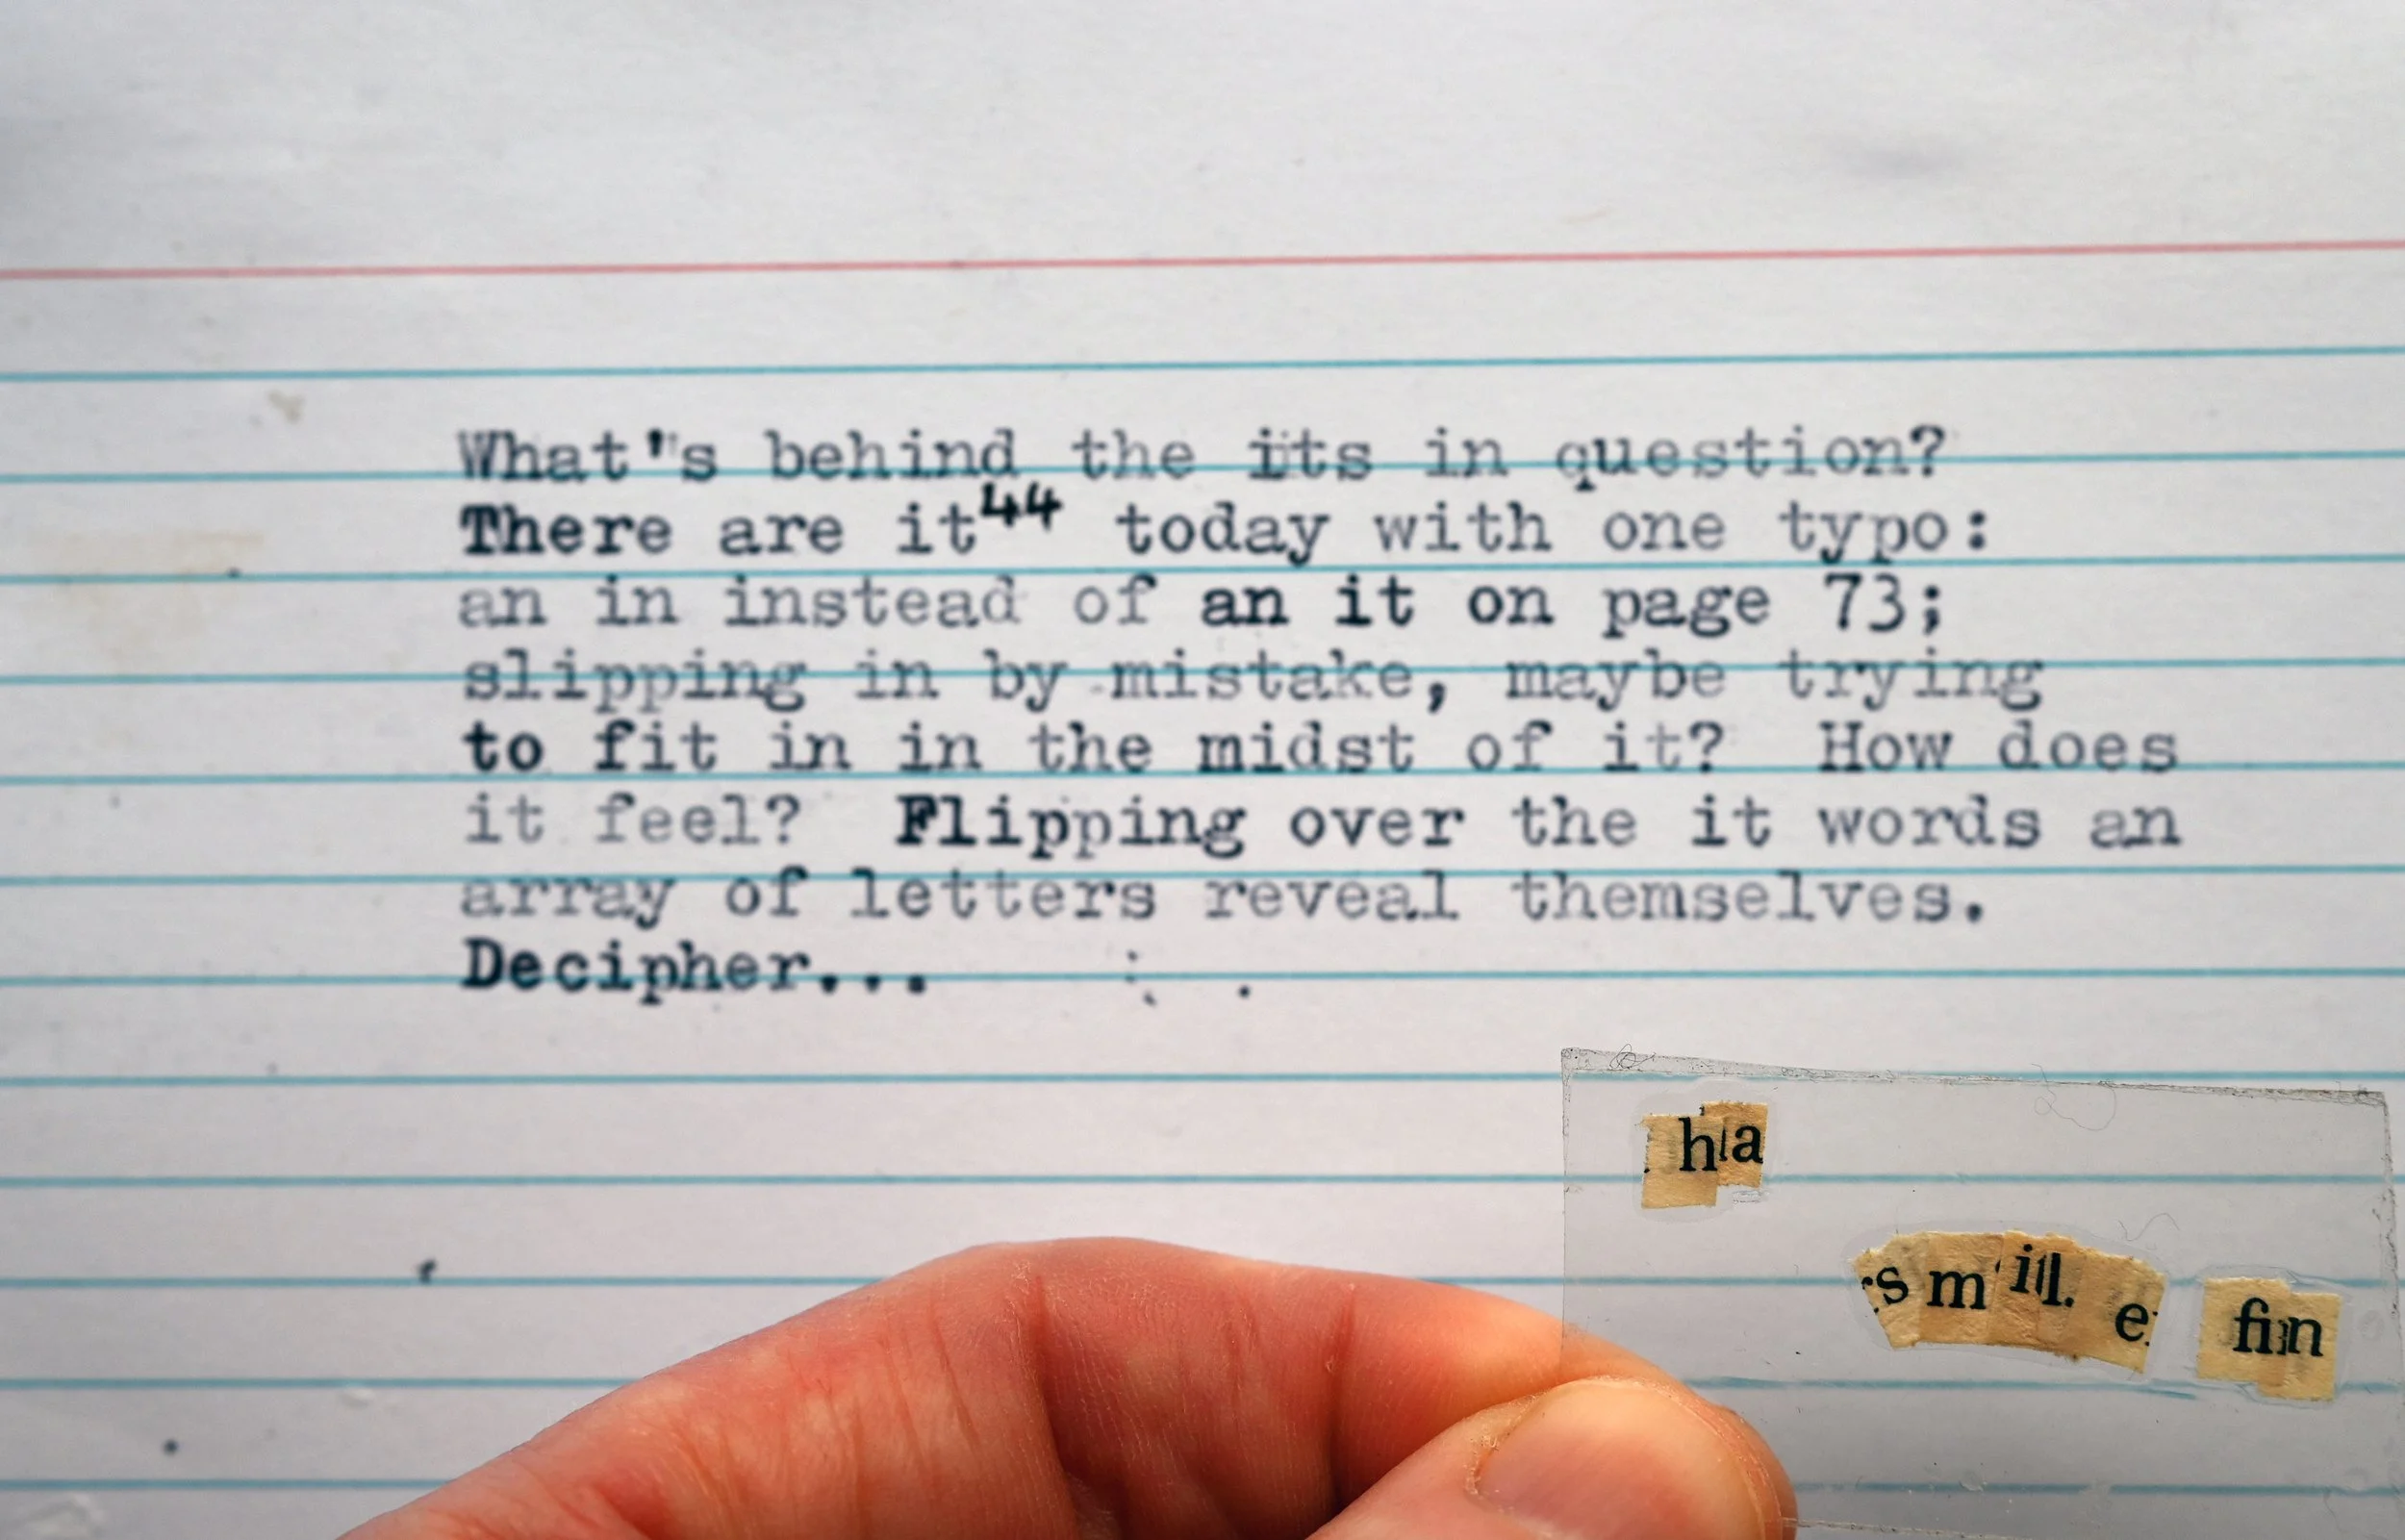 What's behind the its in question?
There are it⁴⁴ today with one typo:
an in instead of an it on page 73;
slipping in by mistake, maybe trying
to fit in in the midst of it?  How does
it feel?  Flipping over the it words an
array of letters reveal themselves.
Decipher...
ha
s m ill. e fin